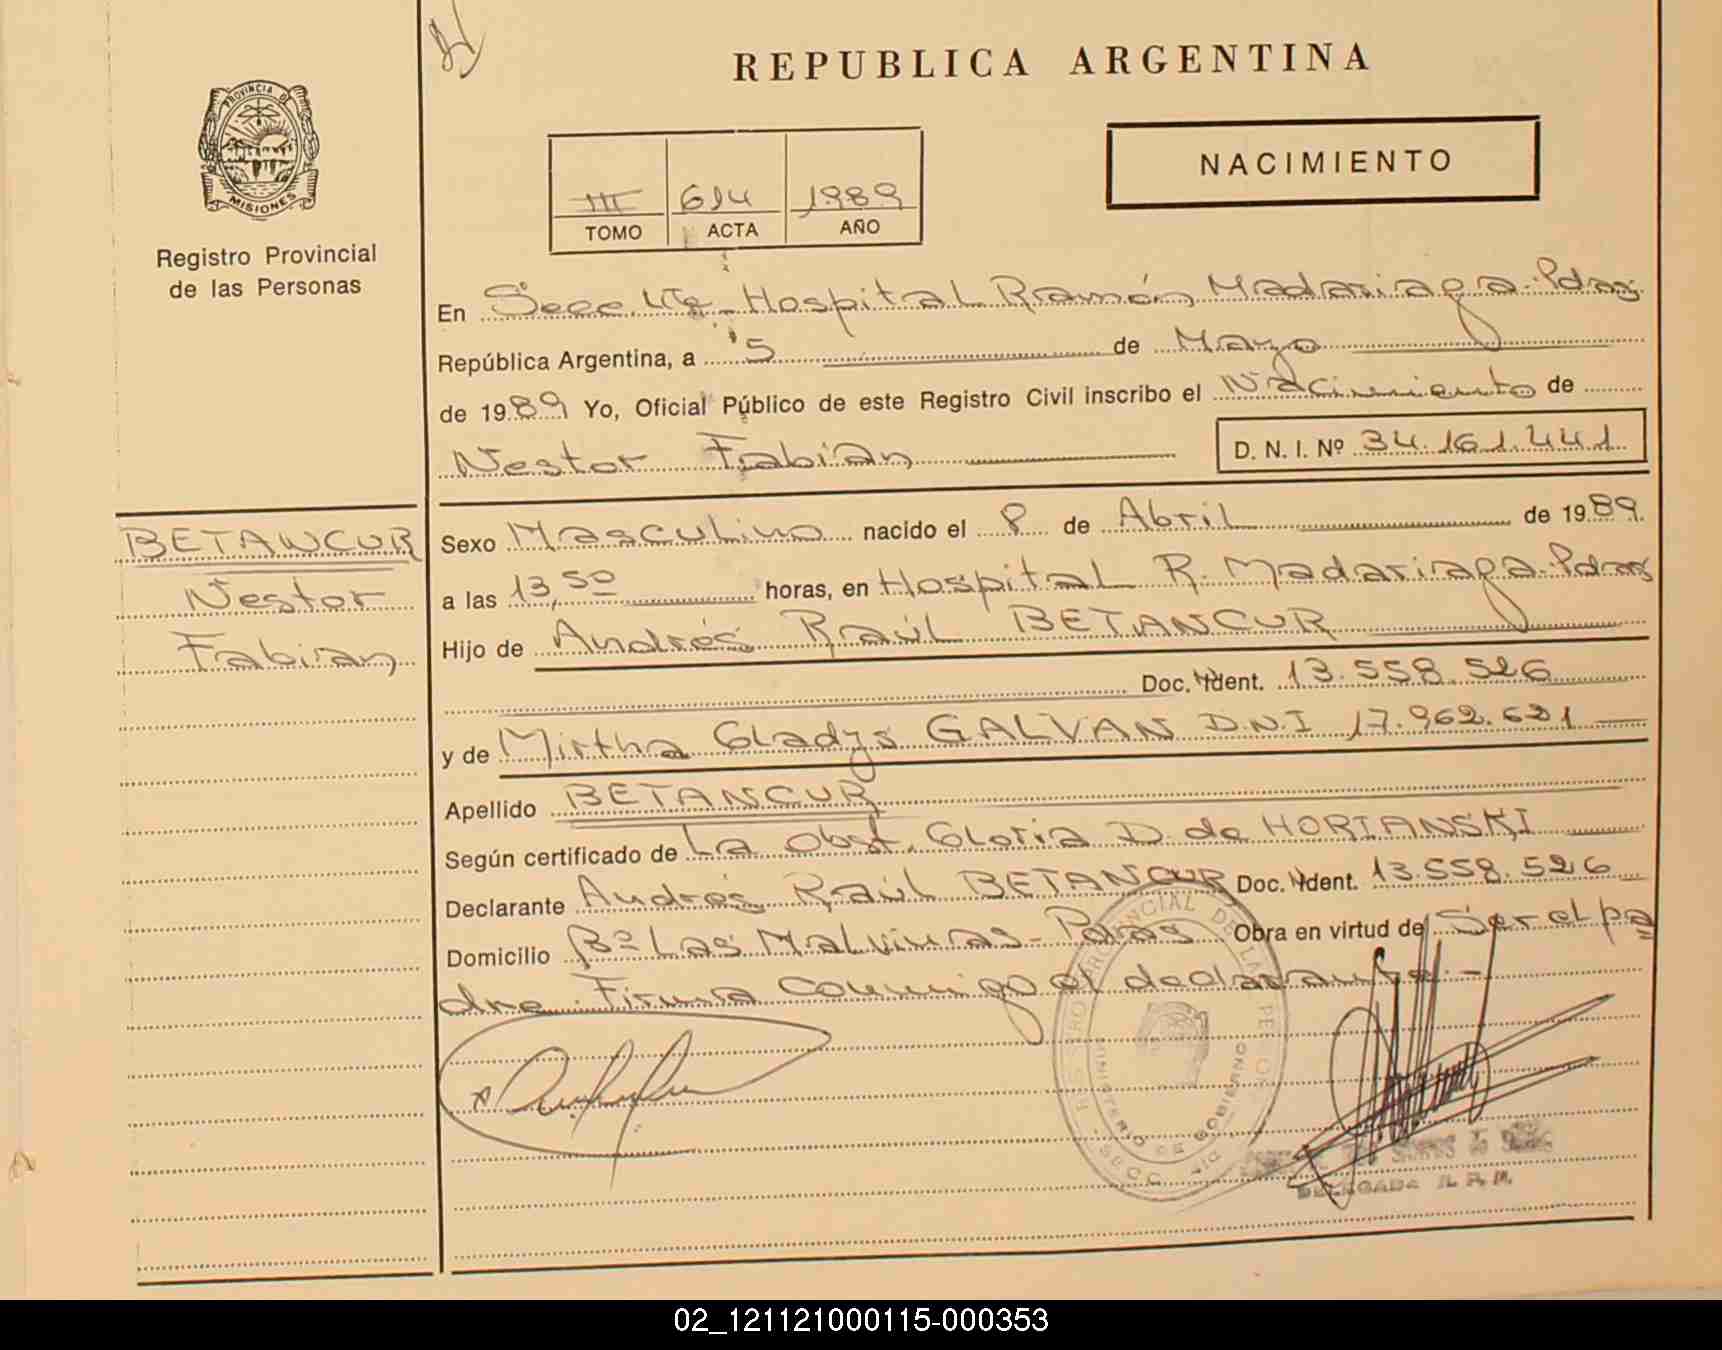 REPUBLICA ARGENTINA
PROVINCIA DE
MISIONES
Registro Provincial
de las Personas
NACIMIENTO
III 614 1989
TOMO ACTA AÑO
En Secc. Hospital Ramón Madariaga-Pdas
República Argentina, a 5 de Mayo
de 1989 Yo, Oficial Público de este Registro Civil inscribo el Nacimiento de
Nestor Fabián D. N. I. Nº 34.161.441
BETANCUR
Nestor
Fabian
Sexo Masculino nacido el 8 de Abril de 1989
a las 13,50 horas, en Hospital R. Madariaga-Pdas
Hijo de Andrés Raúl BETANCUR
Doc. Ident. 13.558.526
y de Mirtha Gladys GALVAN D.N.I 17.962.621
Apellido BETANCUR
Según certificado de La Obst. Gloria D. de HORIANSKI
Declarante Andrés Raúl BETANCUR Doc. Ident. 13.558.526
Domicilio Bº Las Malvinas-Pdas Obra en virtud de Ser el pa
dre. Firma conmigo el declarante.-
MINISTERIO DE GOBIERNO
DELEGADA R. P. P.
02_121121000115-000353